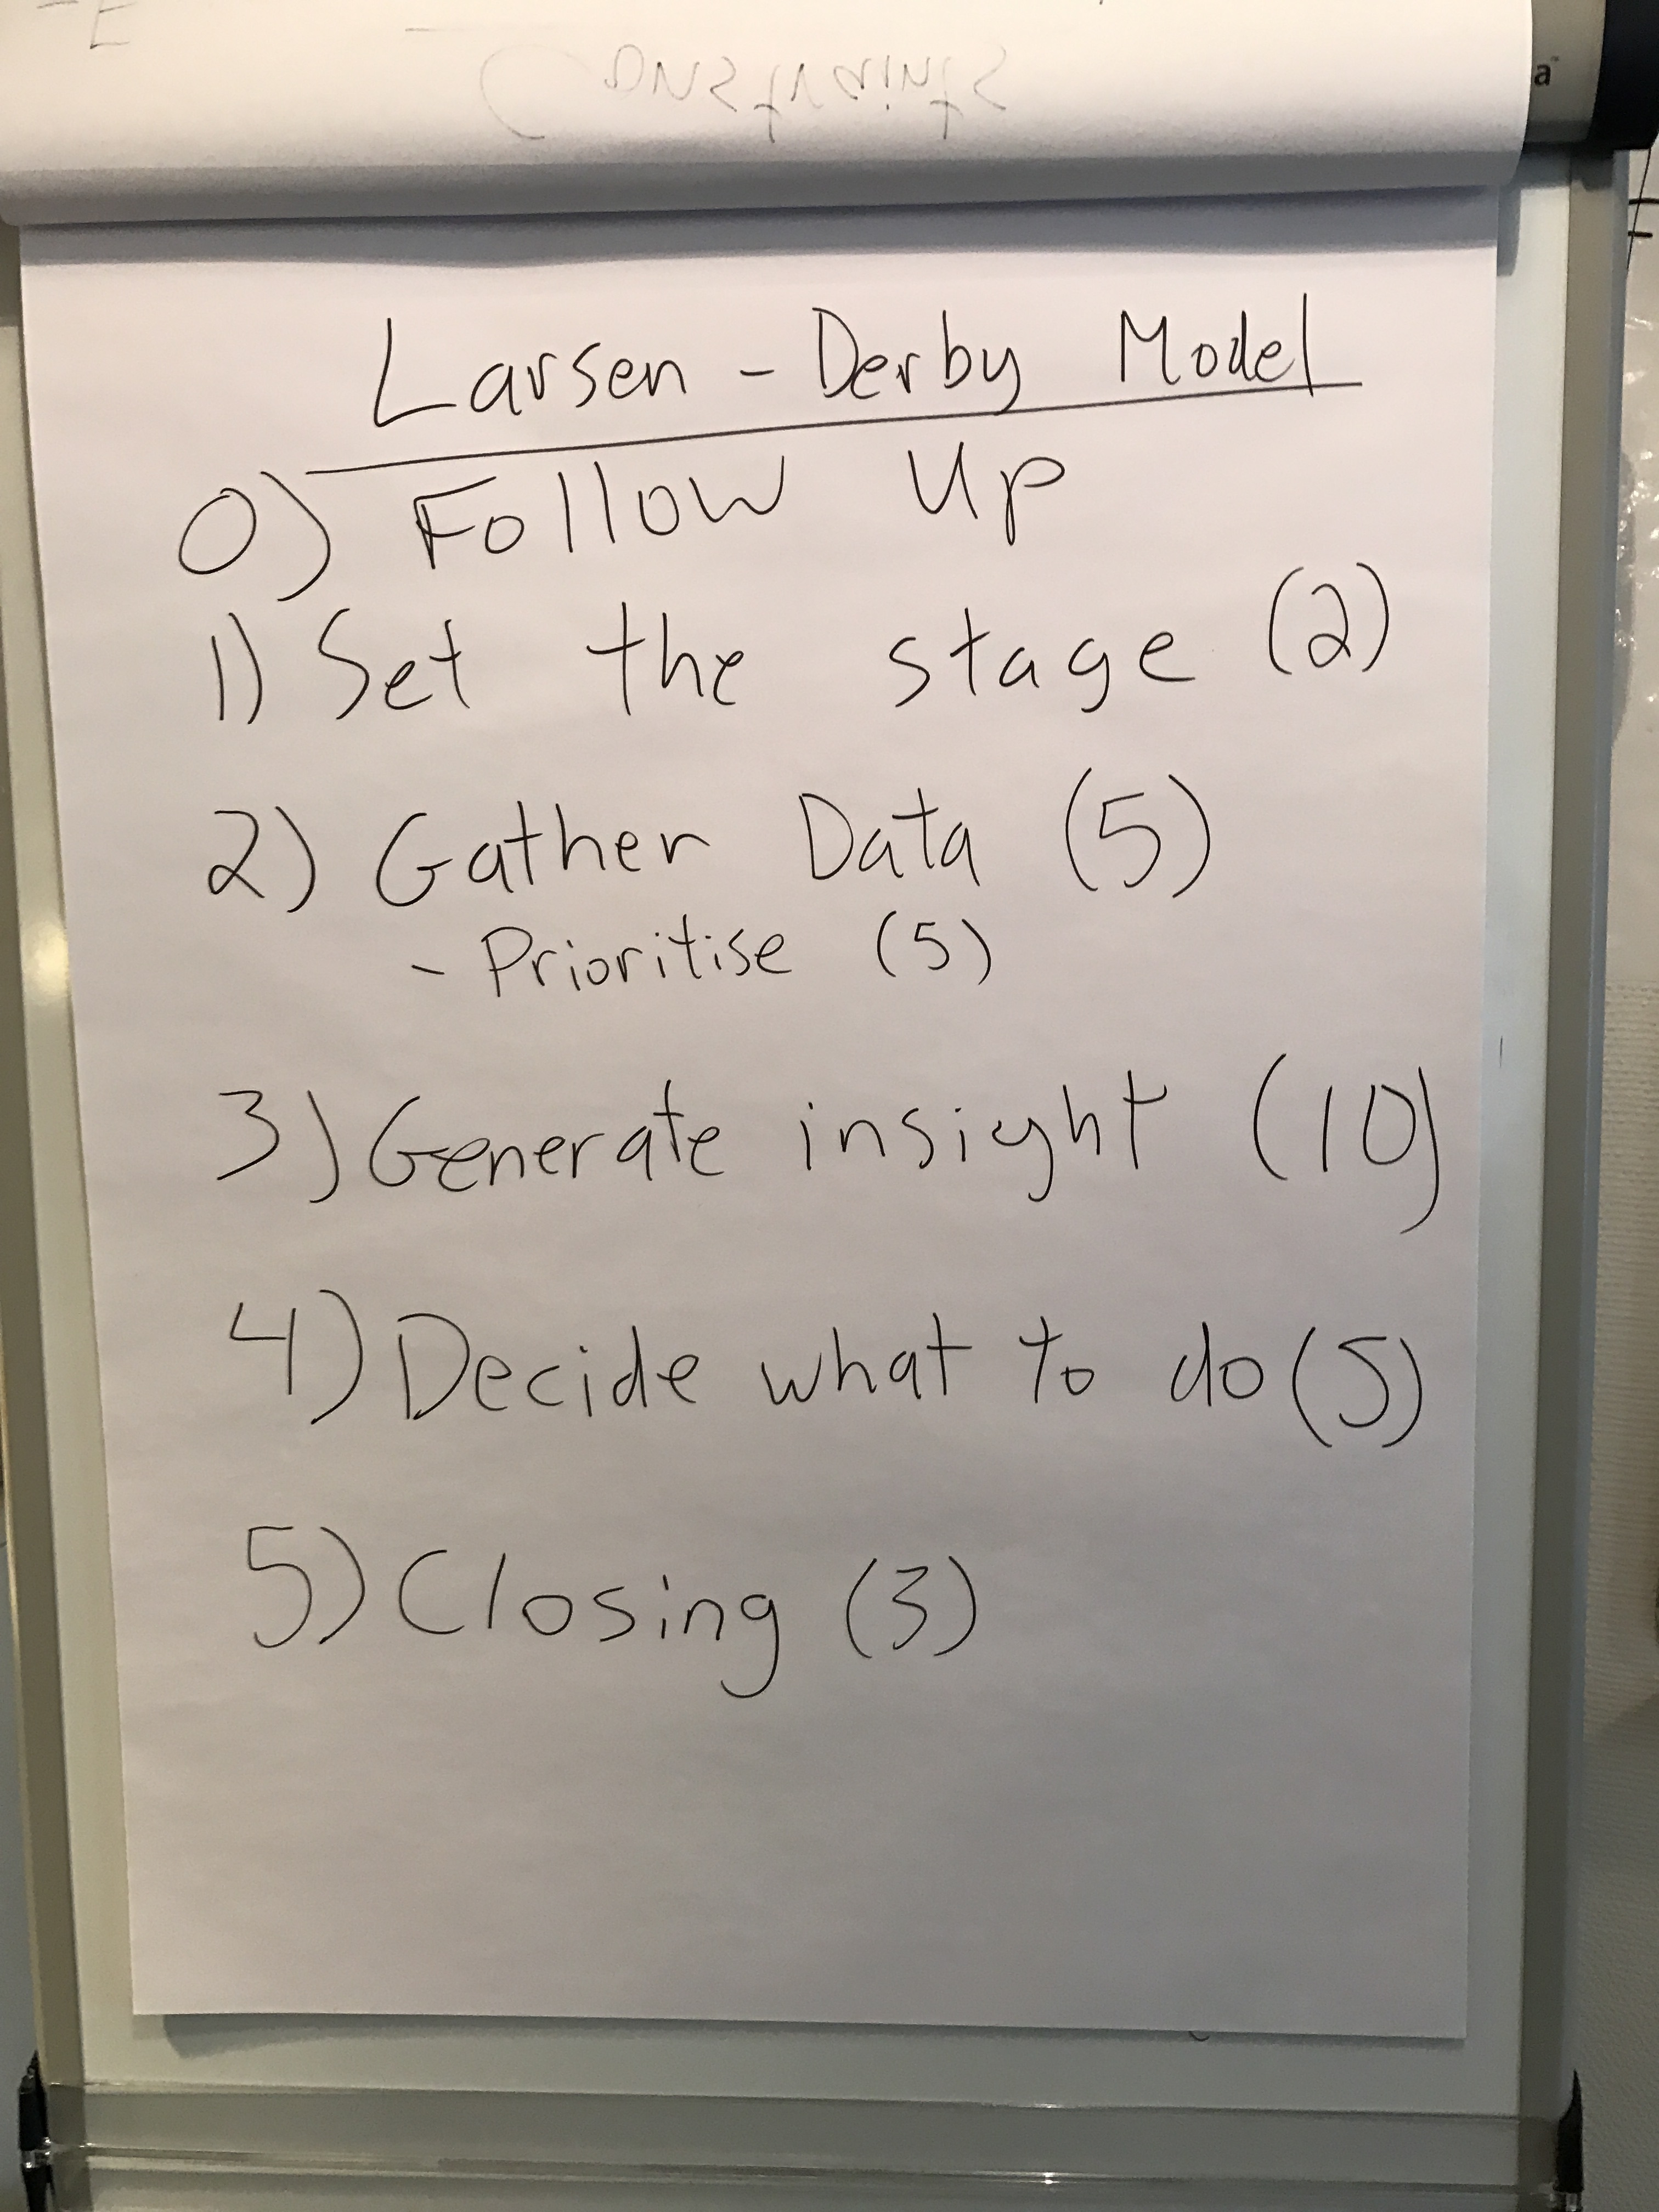 Constraints
a
Larsen - Derby Model
0) Follow Up
1) Set the stage (2)
2) Gather Data (5)
- Prioritise (5)
3) Generate insight (10)
4) Decide what to do (5)
5) Closing (3)